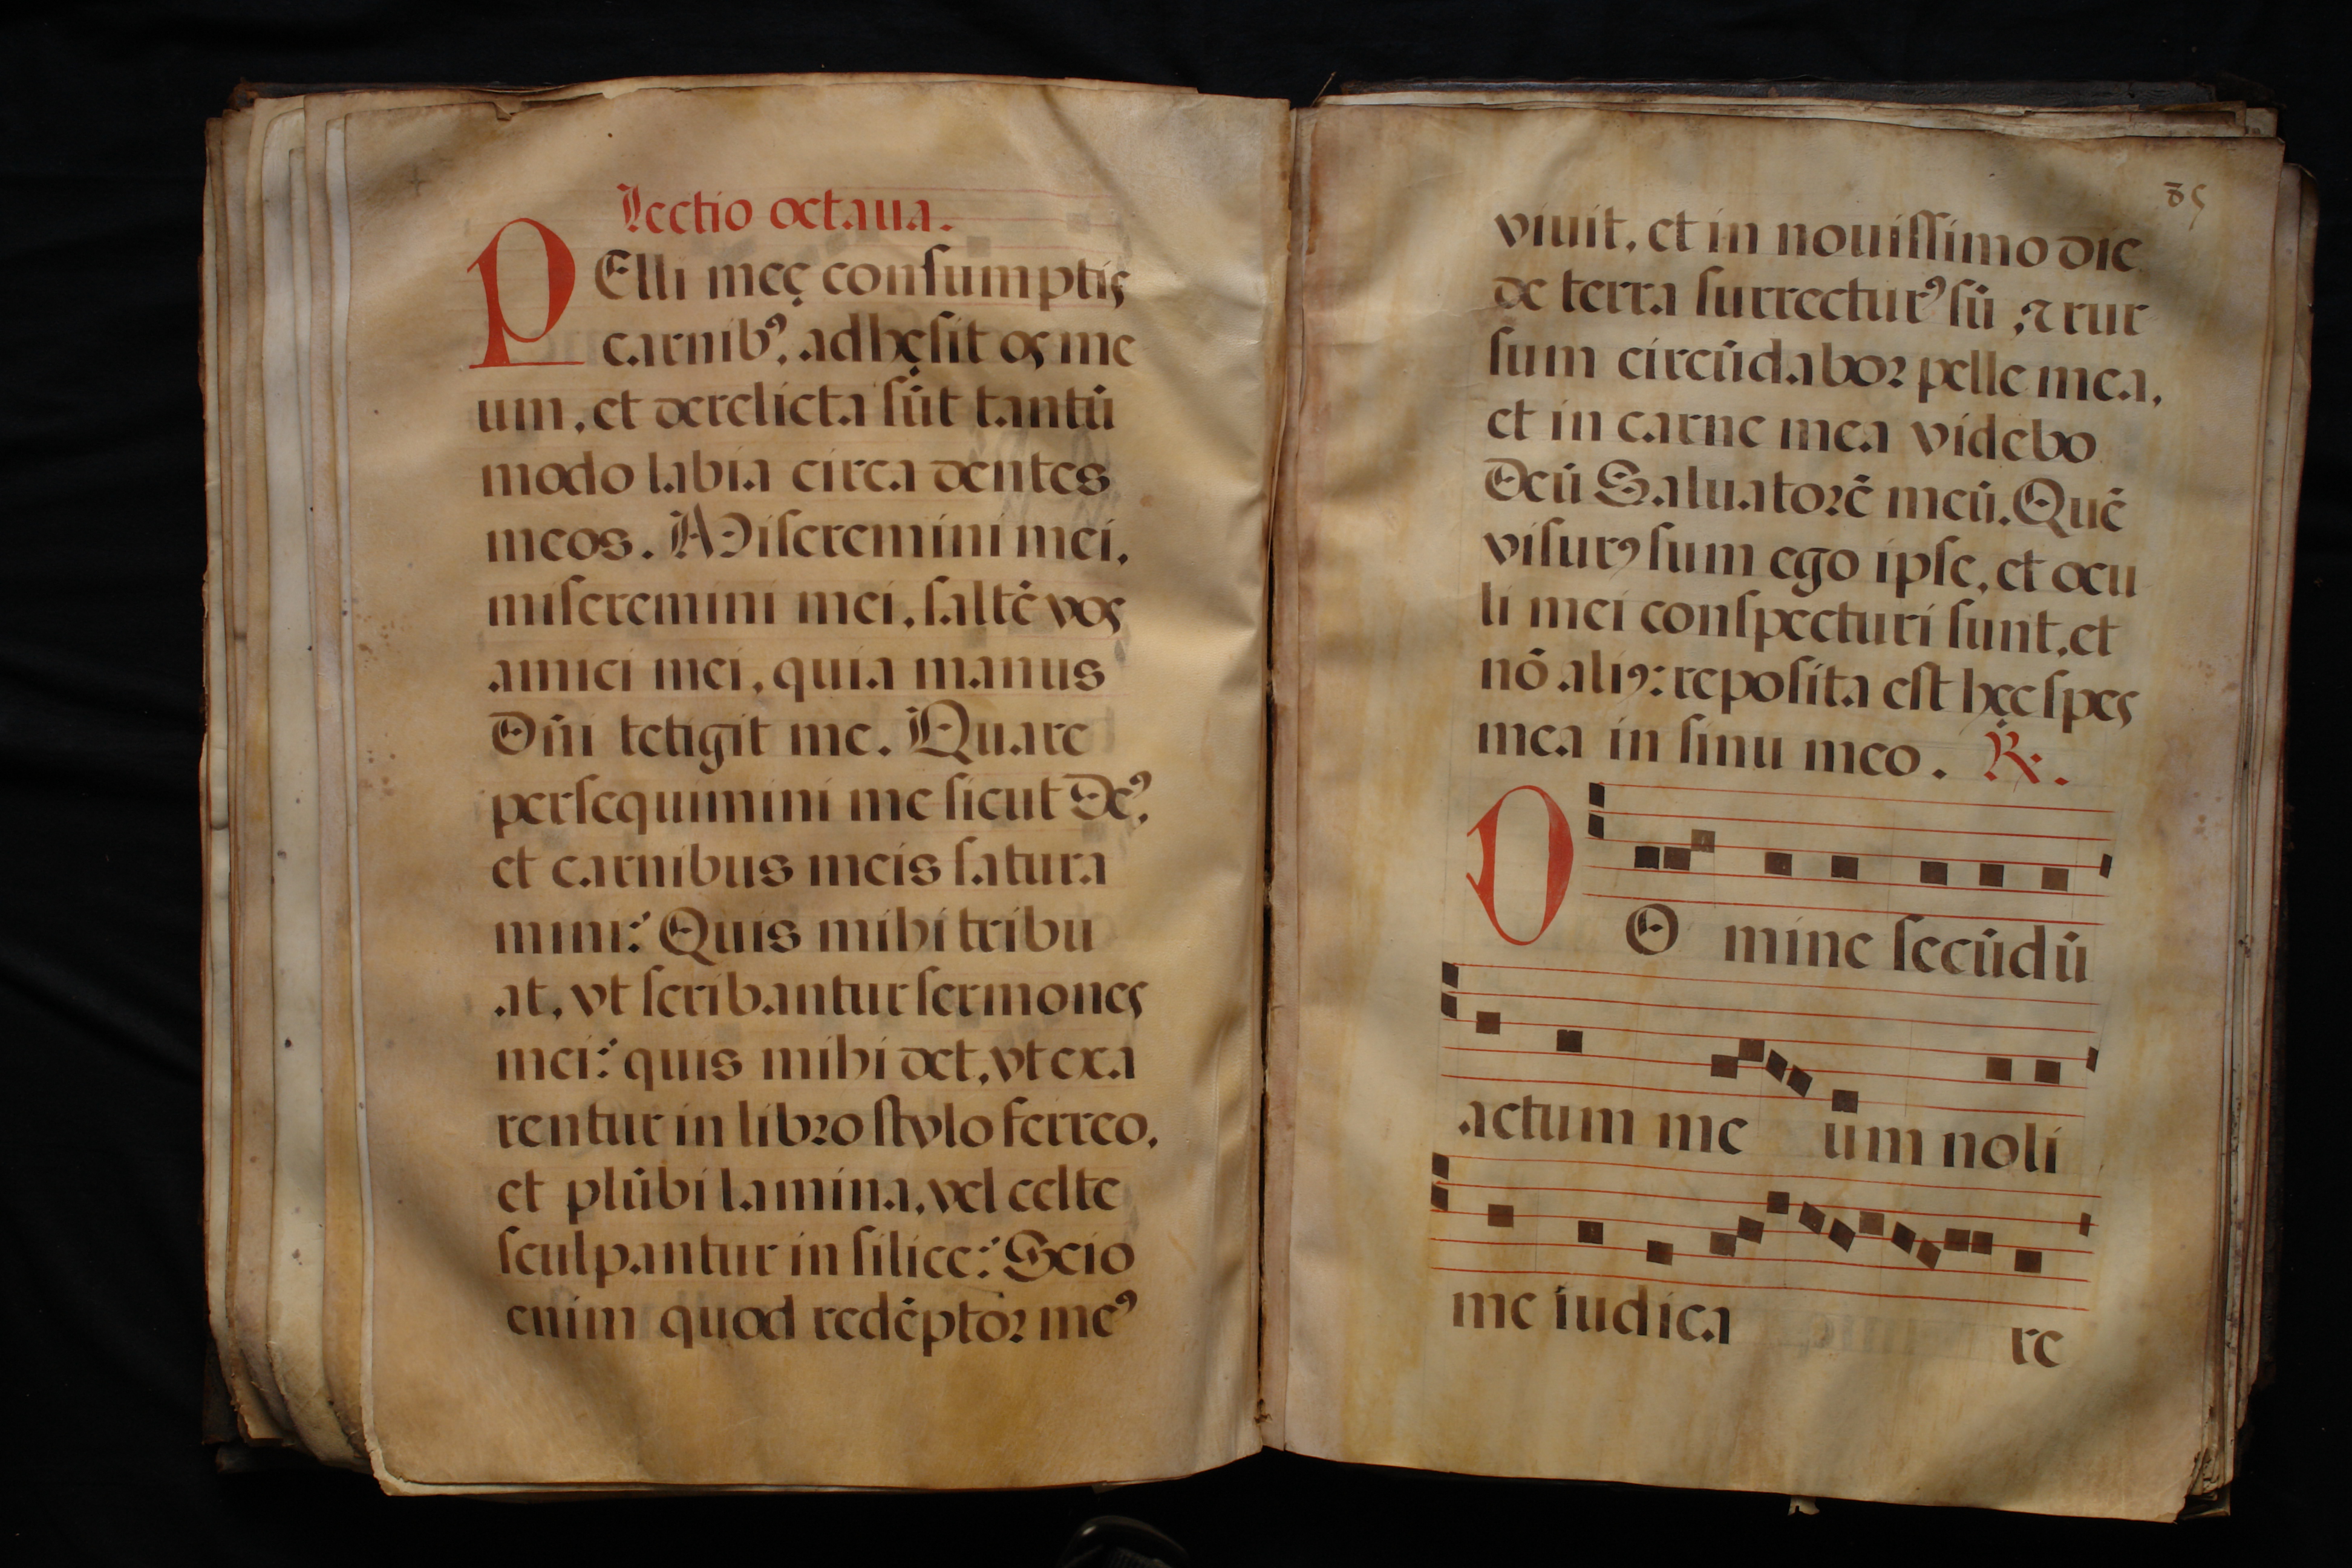 Lectio octaua.
PElli meę conſumptis
carnibꝰ, adhęſit os me
um, et derelicta ſūt tantū
modo labia circa dentes
meos. Miſeremini mei,
miſeremini mei, ſaltē vos
amici mei, quia manus
Dñi tetigit me. Quare
perſequimini me ſicut Deꝰ,
et carnibus meis ſatura
mini? Quis mihi tribu
at, vt ſcribantur ſermones
mei? quis mihi det, vt exa
rentur in libro ſtylo ferreo,
et plūbi lamina, vel celte
ſculpantur in ſilice? Scio
enim quod redēptor meꝰ
85
viuit, et in nouiſſimo die
de terra ſurrecturꝰ ſū, ⁊ rur
ſum circūdabor pelle mea,
et in carne mea videbo
Deū Saluatorē meū. Quē
viſurꝰ ſum ego ipſe, et ocu
li mei conſpecturi ſunt, et
nō aliꝰ: repoſita eſt hęc ſpes
mea in ſinu meo. ℟.
DO mine ſecūdū
actum me um noli
me iudica re